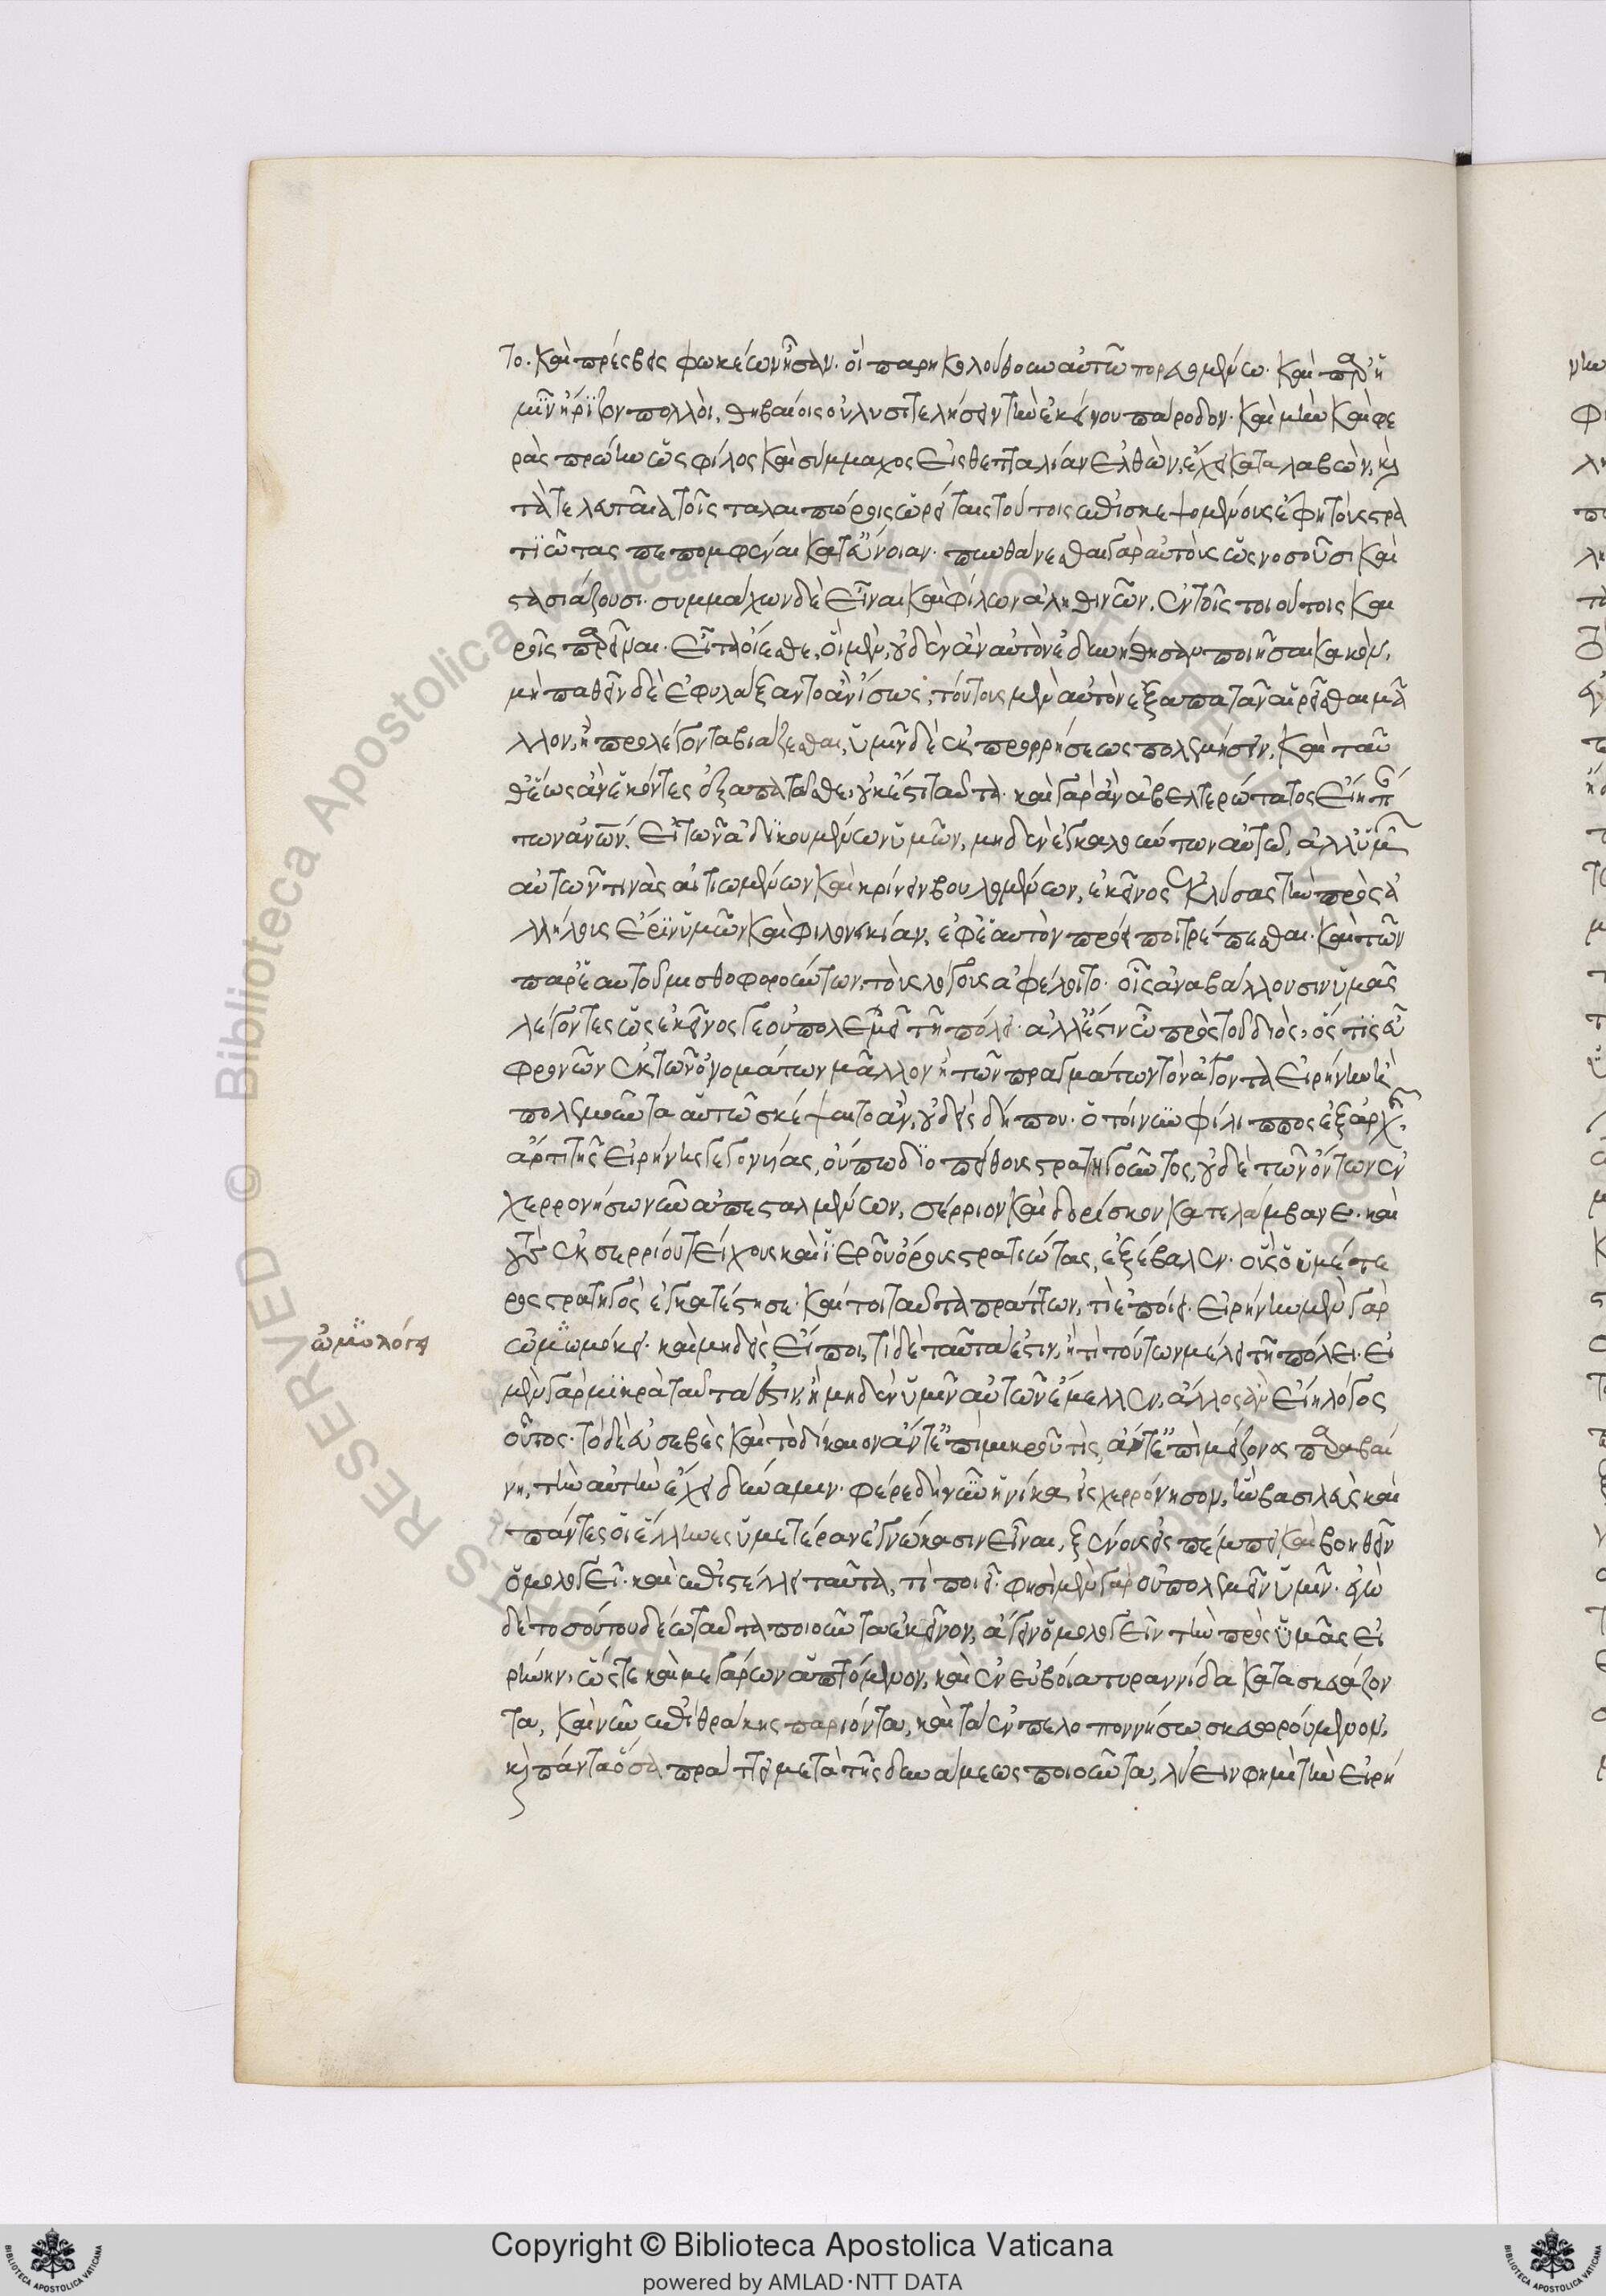 το· καὶ πρέσβεις φωκέων ἦσαν· οἳ παρηκολούθουν αὐτῶ πορευομένω· καὶ παρ' ἡ
μῖν ἤριζον πολλοὶ, θηβαίοις οὐ λυσιτελήσειν τὴν ἐκείνου πάροδον· καὶ μὴν καὶ φε
ρὰς πρώην ὡς φίλος καὶ σύμμαχος εἰς θετταλίαν ἐλθὼν, ἔχει καταλαβὼν, καὶ
τὰ τελευταῖα τοῖς ταλαιπώροις ὠρείταις τούτοις ἐπισκεψομένους ἔφη τοὺς στρα
τιώτας πεπομφέναι κατ' εὔνοιαν· πυνθάνεσθαι γὰρ αὐτοὺς ὡς νοσοῦσι καὶ
στασιάζουσι· συμμάχων δὲ εἶναι καὶ φίλων ἀληθινῶν, ἐν τοῖς τοιούτοις και
ροῖς παρεῖναι· εἶτ' οἴεσθε, οἳ μὲν, οὐδὲν ἂν αὐτὸν ἐδυνήθησαν ποιῆσαι κακὸν,
μὴ παθεῖν δὲ ἐφυλάξαντο ἂν ἴσως, τούτους μὲν αὐτὸν ἐξαπατᾶν αἱρεῖσθαι μᾶ
λλον, ἢ προλέγοντα βιάζεσθαι, ὑμῖν δὲ ἐκ προρρήσεως πολεμήσειν, καὶ ταῦ
θ' ἕως ἂν ἑκόντες ἐξαπατᾶσθε, οὐκ ἔστι ταῦτα· καὶ γὰρ ἂν ἀβελτερώτατος εἴη πάν
των ἀνων. εἰ τῶν ἀδικουμένων ὑμῶν, μηδὲν ἐγκαλούντων αὐτῶ, ἀλλ' ὑμῶν
αὐτῶν τινὰς αἰτιωμένων καὶ κρίνειν βουλομένων, ἐκεῖνος ἐκλύσας τὴν πρὸς ἀ
λλήλους ἔριν ὑμῶν καὶ φιλονεικίαν, ἐφ' ἑαυτὸν προείποι τρέπεσθαι· καὶ τῶν
παρ' ἑαυτοῦ μισθοφορούντων, τοὺς λόγους ἀφέλοιτο· οἷς ἀναβάλλουσιν ὑμᾶς
λέγοντες ὡς ἐκεῖνός γε οὐ πολεμεῖ τῇ πόλει· ἀλλ' ἔστιν ὦ πρὸς τοῦ διὸς, ὅστις εὖ
φρονῶν ἐκ τῶν ὀνομάτων μᾶλλον ἢ τῶν πραγμάτων τὸν ἄγοντα εἰρήνην ἢ
πολεμοῦντα αὐτῷ σκέψαιτο ἂν, οὐδεὶς δήπου· ὁ τοίνυν φίλιππος ἐξ ἀρχῆς,
ἄρτι τῆς εἰρήνης γεγονυίας, οὔπω διοπείθους στρατηγοῦντος, οὐδὲ τῶν ὄντων ἐν
χερρονήσω νῦν ἀπεσταλμένων, σέρριον καὶ δορίσκον κατελάμβανε· καὶ
τοὺς ἐκ σερρίου τείχους καὶ ἱεροῦ ὄρους στρατιώτας, ἐξέβαλεν· οὓς ὁ ὑμέτε
ρος στρατηγὸς ἐγκατέστησε· καίτοι ταῦτα πράττων, τί ἐποίει· εἰρήνην μὲν γὰρ
ὠμωμόκει· καὶ μηδεὶς εἴποι, τί δὲ ταῦτα ἐστὶν, ἢ τί τούτων μέλει τῇ πόλει· εἰ
μὲν γὰρ μικρὰ ταῦτα ἐστὶν, ἢ μηδὲν ὑμῖν αὐτῶν ἔμελλεν, ἄλλος ἂν εἴη λόγος
οὗτος· τὸ δὲ εὐσεβὲς καὶ τὸ δίκαιον ἄν τε ἐπὶ μικροῦ τις, ἄν τε ἐπὶ μείζονος παραβαί
νη, τὴν αὐτὴν ἔχει δύναμιν· φέρε δὴ νῦν ἡνίκα εἰς χερρόνησον, ἣν βασιλεὺς καὶ
πάντες οἱ ἕλληνες ὑμετέραν ἐγνώκασιν εἶναι, ξένους εἰσπέμπει καὶ βοηθεῖν
ὁμολογεῖ· καὶ ἐπιστέλλει ταῦτα, τί ποιεῖ· φησὶ μὲν γὰρ οὐ πολεμεῖν ὑμῖν· ἐγὼ
δὲ τοσούτου δέω ταῦτα ποιοῦντα ἐκεῖνον, ἄγειν ὁμολογεῖν τὴν πρὸς ὑμᾶς εἰ
ρήνην, ὥστε καὶ μεγάρων ἁπτόμενον, καὶ ἐν εὐβοία τυραννίδα κατασκευάζον
τα, καὶ νῦν ἐπὶ θράκης παριόντα, καὶ τὰ ἐν πελοποννήσω σκευωρούμενον,
καὶ πάντα ὅσα πράττει μετὰ τῆς δυνάμεως ποιοῦντα, λύειν φημὶ τὴν εἰρή
ὡμολόγει
Copyright © Biblioteca Apostolica Vaticana
powered by AMLAD·NTT DATA